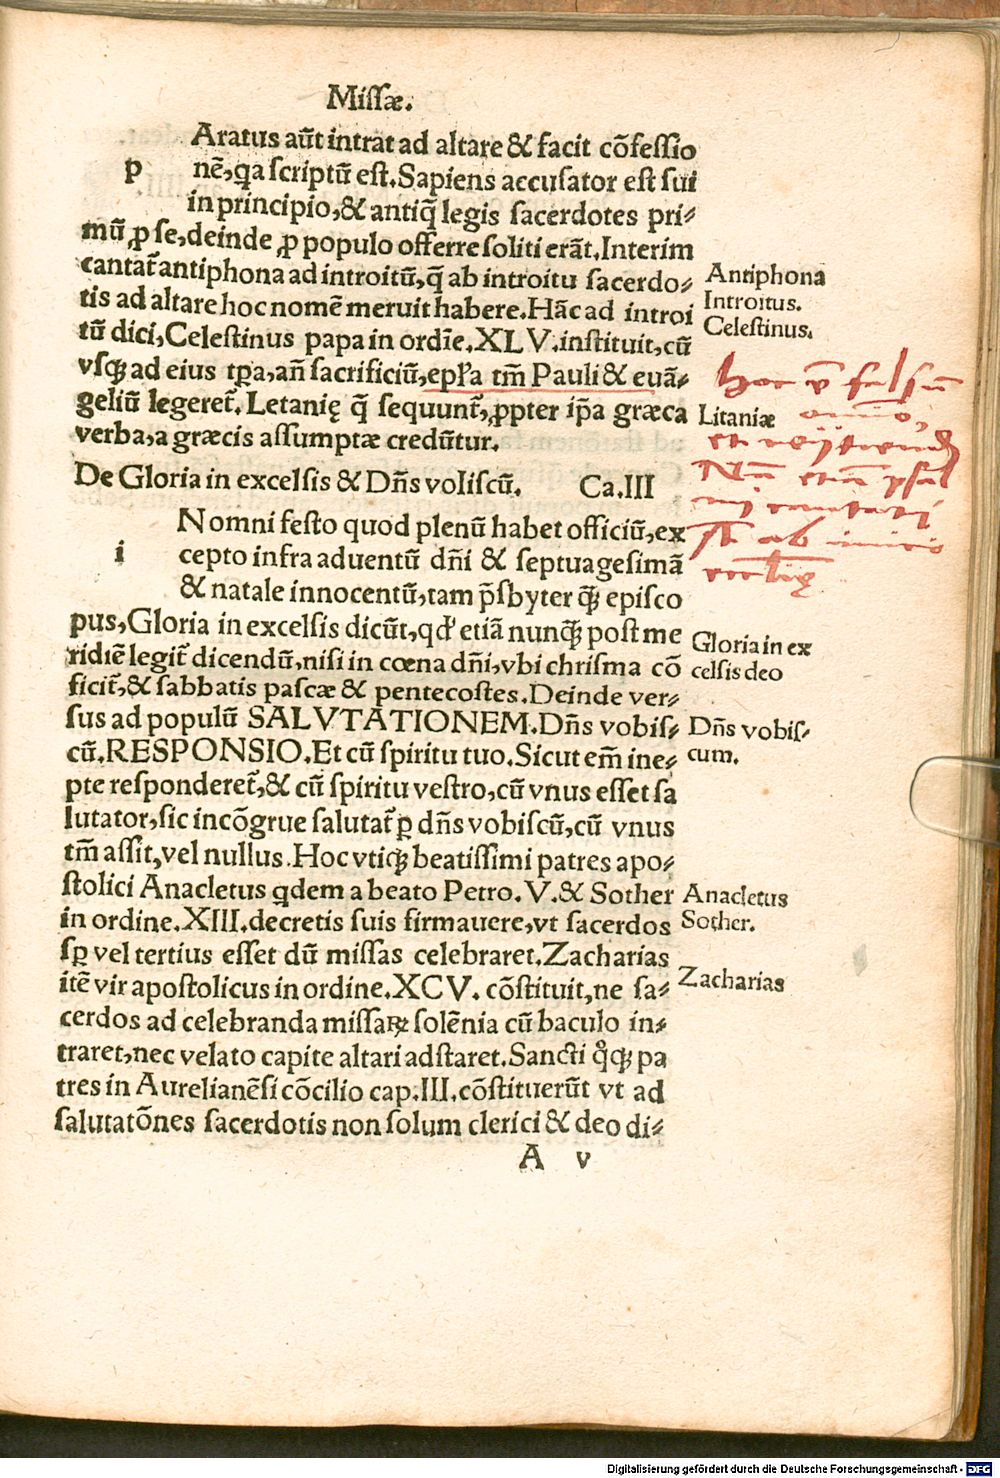 Missæ.
Aratus aūt intrat ad altare & facit cōfessio
p
nē, qa scriptū est. Sapiens accusator est sui
in principio, & antiq̄ legis sacerdotes pri⸗
mū ꝓ se, deinde ꝓ populo offerre soliti erāt. Interim
cantat̄ antiphona ad introitū, q̄ ab introitu sacerdo⸗
tis ad altare hoc nomē meruit habere. Hāc ad introi
tū dici, Celestinus papa in ordīe. XLV. instituit, cū
vsqꝫ ad eius tꝑa, añ sacrificiū, epl̄a tm̄ Pauli & euā⸗
geliū legeret̄. Letanię q̄ sequunt̄, ꝓpter ip̄a græca
verba, a græcis assumptæ credūtur.
Antiphona
Introitus.
Celestinus.
hoc ē falsum
omnino,
et reijciendū
Nam etiam psal
mi cantati
st ab inicio
eccl̄ię
Litaniæ
De Gloria in excelsis & Dn̄s voliscū. Ca. III
N omni festo quod plenū habet officiū, ex
i
cepto infra aduentū dñi & septuagesimā
& natale innocentū, tam p̄sbyter qꝫ episco
pus, Gloria in excelsis dicūt, qd' etiā nunqꝫ post me
ridiē legit̄ dicendū, nisi in cœna dñi, vbi chrisma cō
ficit̄, & sabbatis pascæ & pentecostes. Deinde ver⸗
sus ad populū SALVTATIONEM. Dn̄s vobis⸗
cū. RESPONSIO. Et cū spiritu tuo. Sicut em̄ ine⸗
pte responderet̄, & cū spiritu vestro, cū vnus esset sa
lutator, sic incōgrue salutat̄ ꝑ dn̄s vobiscū, cū vnus
tm̄ assit, vel nullus. Hoc vtiqꝫ beatissimi patres apo⸗
stolici Anacletus qdem a beato Petro. V. & Sother
in ordine. XIII. decretis suis firmauere, vt sacerdos
sꝑ vel tertius esset dū missas celebraret. Zacharias
itē vir apostolicus in ordine. XCV. cōstituit, ne sa⸗
cerdos ad celebranda missaꝝ solēnia cū baculo in⸗
traret, nec velato capite altari adstaret. Sancti qͦqꝫ pa
tres in Aurelianēsi cōcilio cap. III. cōstituerūt vt ad
salutatōnes sacerdotis non solum clerici & deo di⸗
Gloria in ex
celsis deo
Dn̄s vobis⸗
cum.
Anacletus
Sother.
Zacharias
A v
Digitalisierung gefördert durch die Deutsche Forschungsgemeinschaft - DFG